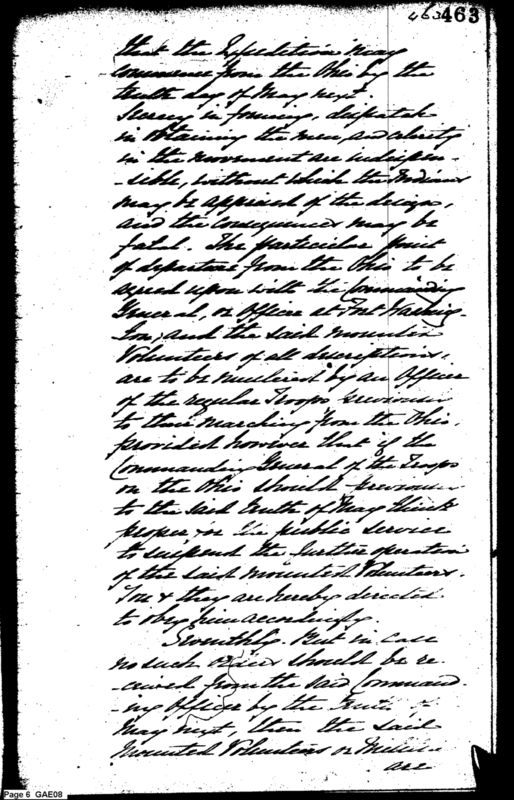 463 463
that the Expedition may
commence from the Ohio by the
tenth day of May next.
Secrecy in forming, dispatch
in obtaining the men, and celerity
in the movement are indispen-
-sible, without which the Indians
may be apprised of the design,
and the consequences may be
fatal. The particular point
of departure from the Ohio to be
agreed upon with the Commanding
General, or Officer at Fort Washing-
ton, and the said mounted
Volunteers of all descriptions,
are to be mustered by an Officer
of the regular Troops previous
to their marching from the Ohio,
provided however that if the
Commanding General of the Troops
on the Ohio should previous
to the said tenth of May think
proper for the public service
to suspend the further operation
of the said mounted Volunteers.
You & they are hereby directed
to obey him accordingly.
Seventhly. But in case
no such orders should be re-
-ceived from the said Command-
-ing Officer by the tenth of
May next, then the said
mounted Volunteers or Militia
are
Page 6 GAE08